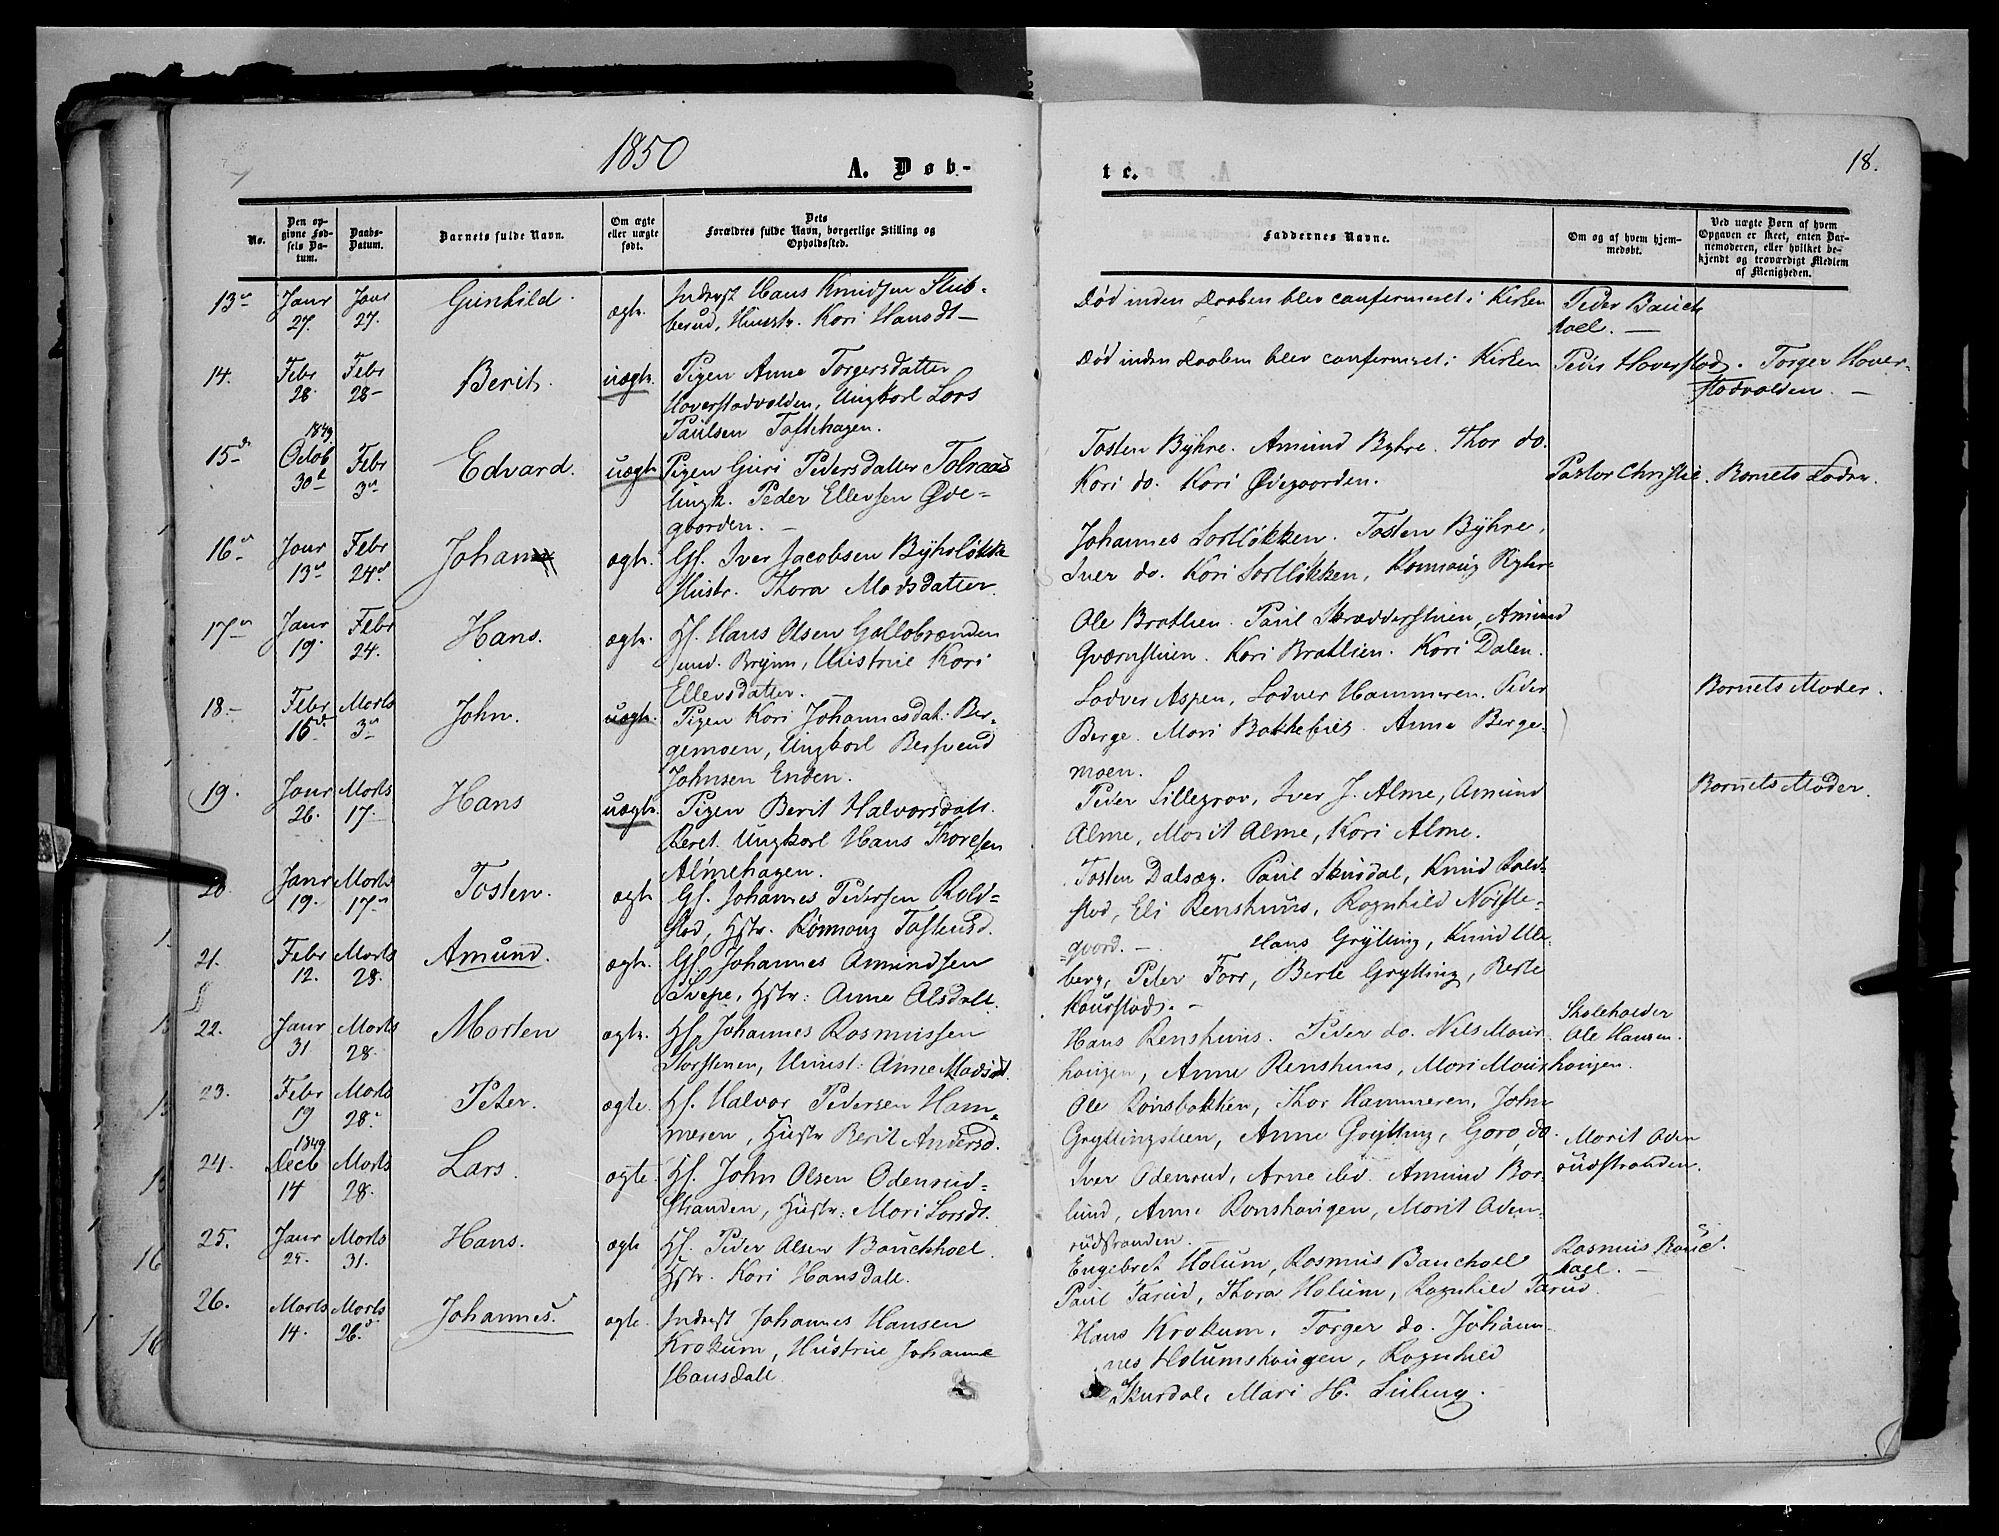 1850
A. Døb-
te.
18.
No.
Den op-
givne Fød-
sels Da-
tum.
Daabs-
Datum.
Barnets fulde Navn.
Om ægte
eller uægte
født.
Dets
Forældres fulde Navn, borgerlige Stilling og
Opholdssted.
Faddernes Navne.
Om og af hvem hjem-
medøbt.
Ved uægte Børn af hvem
Opgaven er skeet, enten Bar-
nemoderen, eller hvilket be-
kjendt og troværdigt Medlem
af Menigheden.
13
Janr
27.
Janr
27.
Gunhild.
ægt.
Inderst Hans Knudsen Stub-
berud, Hustr. Kari Hansdt
Død inden Daaben blev confermeret i Kirken
Peder Bauck
hoel.
14.
Febr
28.
Febr
28
Berit.
uægt.
Pigen Anne Torgersdatter
Hoverstadvolden, Ungkarl Lars
Paulsen Toftehagen.
Død inden Daaben blev confermeret i Kirken
Hoverstad. Torger Hover-
stadvolden.
15
1849
Octob
30
Febr
3
Edvard.
uægt.
Pigen Guri Pedersdatter Tolraas
Ungk. Peder Ellevsen Øve-
gaarden.
Tosten Byhre. Amund Byhre. Thor do.
Kari do. Kari Øvegaarden.
Pastor Christie.
Barnets Fader.
16
Janr
13
Febr
24
Johan
ægt.
Gf. Iver Jacobsen Byhreløkke
Hustr. Thora Madsdatter.
Johannes Sortløkken. Tosten Byhre,
Iver do. Kari Sortløkken, Rønnaug Byhre
17
Janr
19.
Febr
24.
Hans.
ægt.
Hf. Hans Olsen Gallobrænden
Brynn, Hustrue Kari
Ellevsdatter.
Ole Bratlien. Paul Skrædderstuen, Amund
Qværnstuen. Kari Bratlien. Kari Dalen.
18
Febr
16
Marts
3
John.
uægt.
Pigen Kari Johannesdat: Ber-
gemoen, Ungkarl Bersvend
Johnsen Enden.
Lodver Aspen, Lodver Hammeren. Peder
Berge. Mari Anne Berge-
moen.
Barnets Moder.
19.
Janr
26.
Marts
17.
Hans
uægt.
Pigen Berit Halvorsdatt.
Ungkarl Hans Thoresen
Almehagen.
Peder Lillegrov, Iver J. Alme, Amund
Alme, Marit Alme, Kari Alme.
Barnets Moder.
20.
Janr
19.
Marts
17
Tosten.
ægt.
Gf. Johannes Pedersen Rold-
stad, Hstr. Rønnaug Tostensd.
Tosten Dalsæg. Paul Skurdal, Knud Rold-
stad, Eli Renshuus, Ragnhild Nørste-
gaard.
21.
Febr
12.
Marts
28.
Amund.
ægt.
Gf. Johannes Amundsen
Svepe, Hstr: Anne Olsdatt.
Hans Grytting, Knud Ule-
berg, Peter Forr, Berte Grytting, Berte
Kaurstad.
22.
Janr
31
Marts
28.
Morten
ægt.
Hf. Johannes Rasmussen
Torstenen, Hust: Anne Madsd.
Hans Renshuus. Peder do. Nils Maur-
hougen, Anne Renshuus, Mari Maurhougen.
Skoleholder
Ole Hansen.
23.
Febr
19
Marts
28.
Peter.
ægte.
Hf. Halvor Pedersen Ham-
meren, Hustr Berit Andersd.
Ole Rønsbakken, Thor Hammeren, John
Gryttingslien, Anne Grytting, Goro do
24.
1849
Decb
14
Marts
28.
Lars.
ægte.
Hf. John Olsen Odenrud-
stranden, Hustr: Mari Larsdt.
Iver Odenrud, Arne ibd. Amund Bor-
lund, Anne Ronshougen, Marit Oden-
rudstranden.
Marit Oden
rudstranden.
25.
Janr
25.
Marts
31.
Hans.
ægt
Hf. Peder Olsen Bauckhoel.
Hstr. Kari Hansdatt.
Engebret Holum, Rasmus Bauchoel
Paul Tarud, Thora Holum, Ragnhild Tarud.
Rasmus Bauc
hoel.
26.
Marts
14.
Marts
26.
Johannes.
ægte.
Inderst Johannes Hansen
Krokum, Hustrue Johanne
Hansdatt.
Hans Krokum, Torger do. Johan-
nes Holumshougen, Ragnhild
Skurdal, Mari H.